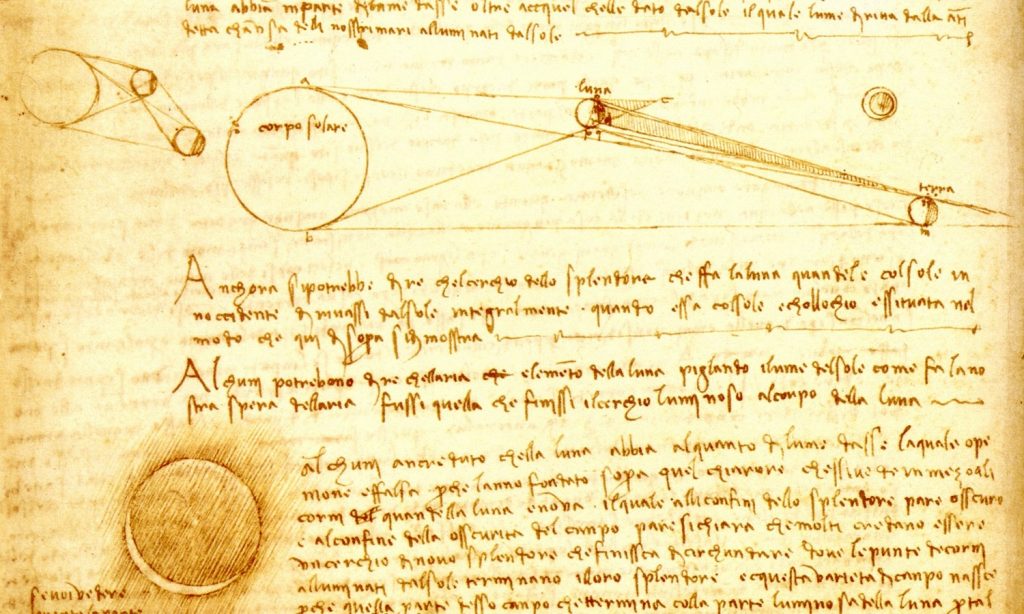 luna abbia in parte di lume da sse oltre acquel chelle dato dalsole il quale lume diriva dalla
alluminati dalsole
a
luna
c
corpo solare
terra
b
m
Anchora sipotrebbe dire chelcerchio dello splendore che ffa laluna quandell e colsole in
noccidente dirivassi dalsole integralmente quando essa cossole echollochio essituata nel
modo che qui di sopra si dimosstra
Alchuni potrebono dire chellaria elemento della luna pigliando ilume delsole come fa lano
stra spera dellaria fussi quella che finissi ilcerchio luminoso alcorpo della luna
Alchuni an creduto chella luna abbia alquanto di lume dasse laquale ope
nione effalsa perche lanno fondato sopra quel chiarore chessivede in mezo ali
corni quandella luna e nova ilquale alliconfini dello splendore pare osscuro
e alconfine della osscurita del campo pare sichiara che molti credano essere
un cerchio di nuovo splendore che finissca di circhundare dove le punte de corni
alluminati dalsole terminano illoro splendore ecquesta varieta di canpo nassce
perche quella parte desso canpo chettermina colla parte luminosa della luna
se voi vedere